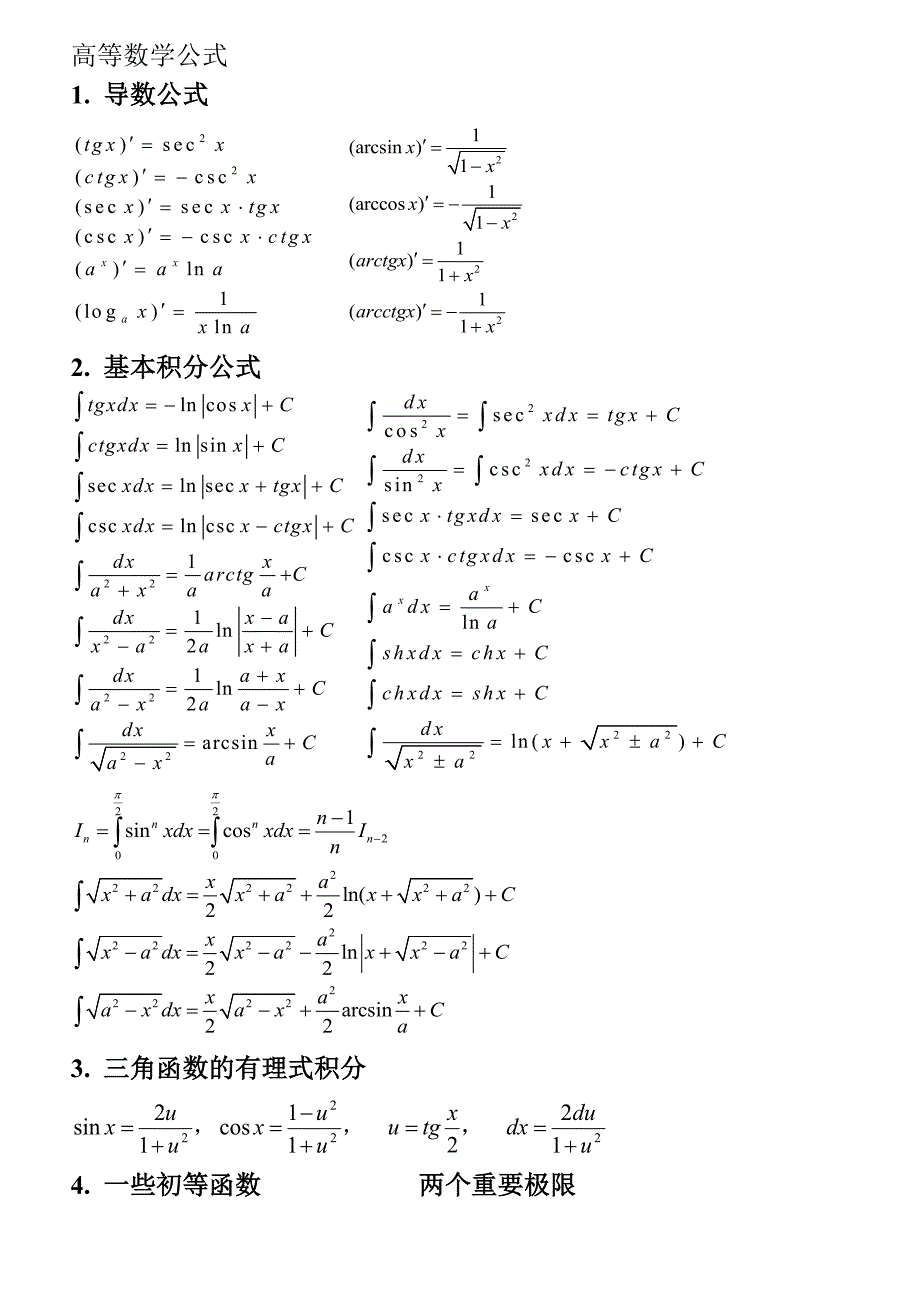 高等数学公式
1. 导数公式
(tgx)′ = sec² x
(ctgx)′ = − csc² x
(sec x)′ = sec x · tgx
(csc x)′ = − csc x · ctgx
(aˣ)′ = aˣ ln a
(logₐ x)′ = 1/(x ln a)
(arcsin x)′ = 1/√(1 − x²)
(arccos x)′ = − 1/√(1 − x²)
(arctgx)′ = 1/(1 + x²)
(arcctgx)′ = − 1/(1 + x²)
2. 基本积分公式
∫tgxdx = − ln|cos x| + C
∫ctgxdx = ln|sin x| + C
∫sec xdx = ln|sec x + tgx| + C
∫csc xdx = ln|csc x − ctgx| + C
∫dx/(a² + x²) = (1/a) arctg (x/a) + C
∫dx/(x² − a²) = (1/2a) ln|(x − a)/(x + a)| + C
∫dx/(a² − x²) = (1/2a) ln (a + x)/(a − x) + C
∫dx/√(a² − x²) = arcsin (x/a) + C
∫dx/cos² x = ∫sec² xdx = tgx + C
∫dx/sin² x = ∫csc² xdx = −ctgx + C
∫sec x · tgxdx = sec x + C
∫csc x · ctgxdx = − csc x + C
∫aˣdx = aˣ/ln a + C
∫shxdx = chx + C
∫chxdx = shx + C
∫dx/√(x² ± a²) = ln(x + √(x² ± a²)) + C
Iₙ = ∫₀^(π/2) sinⁿ xdx = ∫₀^(π/2) cosⁿ xdx = ((n − 1)/n) Iₙ₋₂
∫√(x² + a²)dx = (x/2)√(x² + a²) + (a²/2) ln(x + √(x² + a²)) + C
∫√(x² − a²)dx = (x/2)√(x² − a²) − (a²/2) ln|x + √(x² − a²)| + C
∫√(a² − x²)dx = (x/2)√(a² − x²) + (a²/2) arcsin (x/a) + C
3. 三角函数的有理式积分
sin x = 2u/(1 + u²)， cos x = (1 − u²)/(1 + u²)， u = tg (x/2)， dx = 2du/(1 + u²)
4. 一些初等函数 两个重要极限